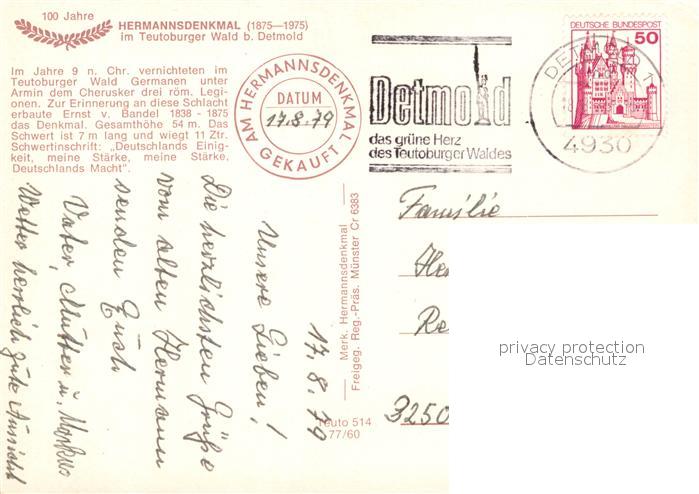 100 Jahre
HERMANNSDENKMAL (1875—1975)
im Teutoburger Wald b. Detmold
Im Jahre 9 n. Chr. vernichteten im
Teutoburger Wald Germanen unter
Armin dem Cherusker drei röm. Legi-
onen. Zur Erinnerung an diese Schlacht
erbaute Ernst v. Bandel 1838 - 1875
das Denkmal. Gesamthöhe 54 m. Das
Schwert ist 7 m lang und wiegt 11 Ztr.
Schwertinschrift: „Deutschlands Einig-
keit, meine Stärke, meine Stärke,
Deutschlands Macht".
AM HERMANNSDENKMAL
DATUM
17.8.79
GEKAUFT
Detmold
das grüne Herz
des Teutoburger Waldes
DEUTSCHE BUNDESPOST
50
4930
17.8.79
Unsere Lieben!
Die herzlichsten Grüße
vom alten Hermann
senden Euch
Vater, Mutter u. Markus
Wetter herrlich gute Aussicht
Merk. Hermannsdenkmal
Freigeg. Reg.-Präs. Münster Cr 6383
Teuto 514
77/60
Familie
He
Re
3250
privacy protection
Datenschutz